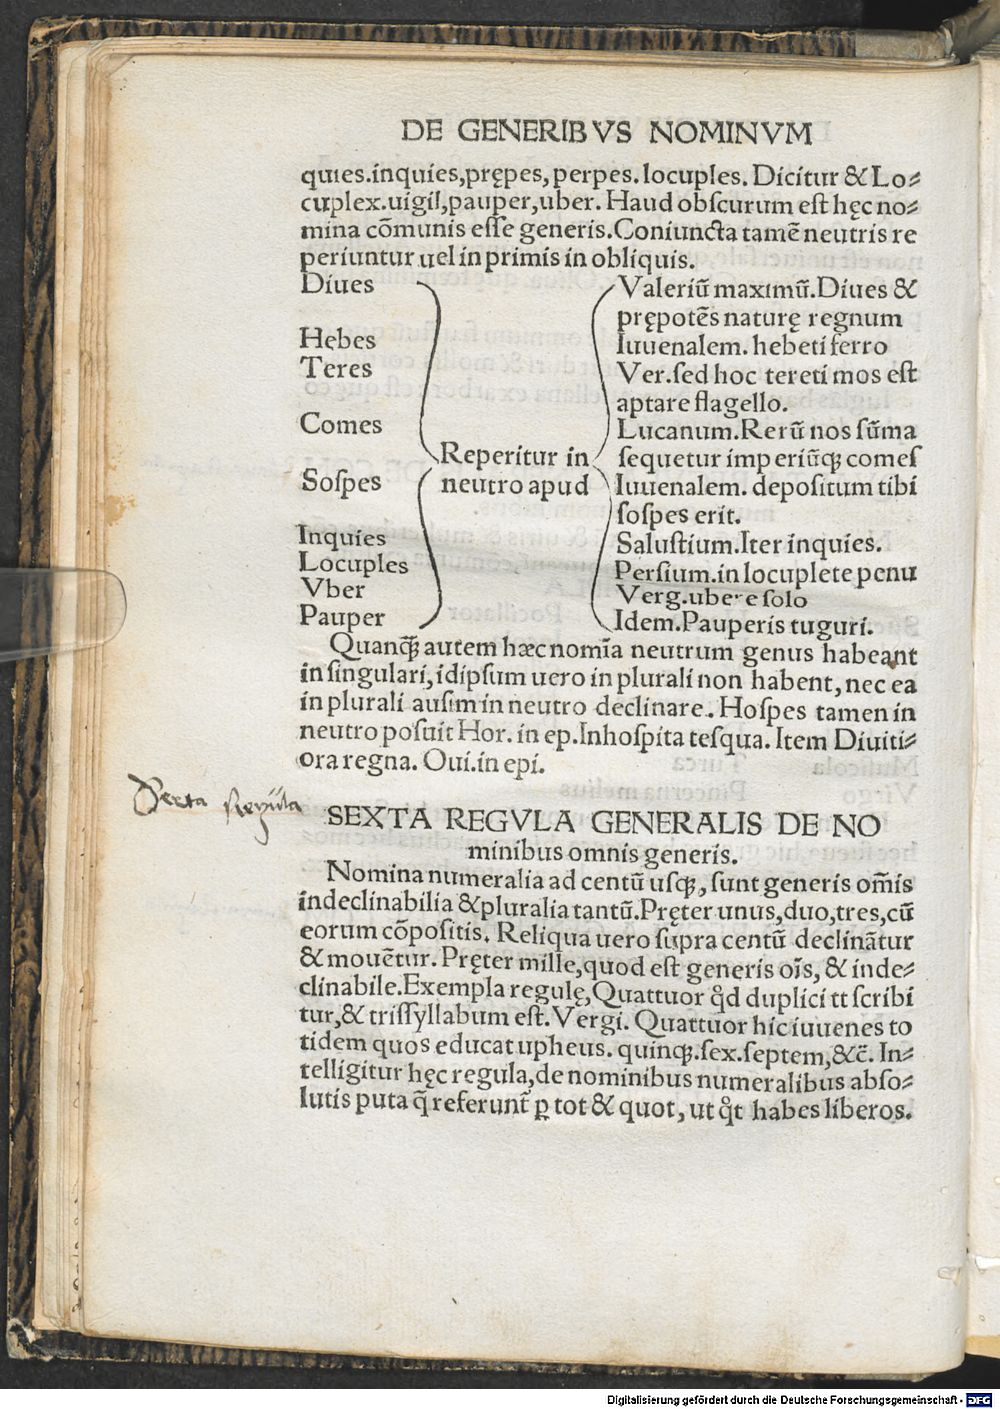 DE GENERIBVS NOMINVM
quies.inquies,prępes, perpes. locuples. Dicitur & Lo⸗
cuplex.uigil,pauper,uber. Haud obscurum est hęc no⸗
mina cōmunis esse generis.Coniuncta tamē neutris re
periuntur uel in primis in obliquis.
Diues
Hebes
Teres
Comes
Sospes
Inquies
Locuples
Vber
Pauper
Reperitur in
neutro apud
Valeriū maximū.Diues &
prępotēs naturę regnum
Iuuenalem. hebeti ferro
Ver.sed hoc tereti mos est
aptare flagello.
Lucanum.Rerū nos sūma
sequetur imperiūq; comes
Iuuenalem. depositum tibi
sospes erit.
Salustium.Iter inquies.
Persium.in locuplete penu
Verg.ubere solo
Idem.Pauperis tuguri.
Quanq̃ autem hæc nomīa neutrum genus habeant
in singulari, idipsum uero in plurali non habent, nec ea
in plurali ausim in neutro declinare. Hospes tamen in
neutro posuit Hor. in ep.Inhospita tesqua. Item Diuiti⸗
ora regna. Oui.in epi.
Sexta Regula
SEXTA REGVLA GENERALIS DE NO
minibus omnis generis.
Nomina numeralia ad centū usq;, sunt generis om̄is
indeclinabilia & pluralia tantū.Pręter unus,duo,tres,cū
eorum cōpositis. Reliqua uero supra centū declinātur
& mouētur. Pręter mille,quod est generis oīs, & inde⸗
clinabile.Exempla regulę,Quattuor q̊d duplici tt scribi
tur,& trissyllabum est.Vergi. Quattuor hic iuuenes to
tidem quos educat upheus. quinq;.sex.septem,&c̄. In⸗
telligitur hęc regula,de nominibus numeralibus abso⸗
lutis puta q̄ referunt̄ ꝑ tot & quot, ut q̊t habes liberos.
Digitalisierung gefördert durch die Deutsche Forschungsgemeinschaft - DFG